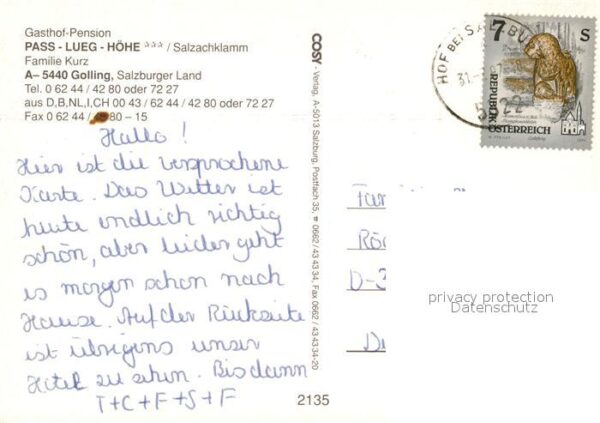 Gasthof-Pension
PASS - LUEG - HÖHE *** / Salzachklamm
Familie Kurz
A- 5440 Golling, Salzburger Land
Tel. 0 62 44 / 42 80 oder 72 27
aus D,B,NL,I,CH 00 43 / 62 44 / 42 80 oder 72 27
Fax 0 62 44 / 42 80 - 15
Hallo!
Hier ist die versprochene
Karte. Das Wetter ist
heute endlich richtig
schön, aber leider geht
es morgen schon nach
Hause. Auf der Rückseite
ist übrigens unser
Hotel zu sehen. Bis dann
T+C+F+S+F
COSY - Verlag, A-5013 Salzburg, Postfach 35, ☎ 0662 / 43 43 34, Fax 0662 / 43 43 34-20
2135
HOF BEI SALZBURG
5322
7 S
REPUBLIK
ÖSTERREICH
Fam
Rö
D-3
privacy protection
Datenschutz